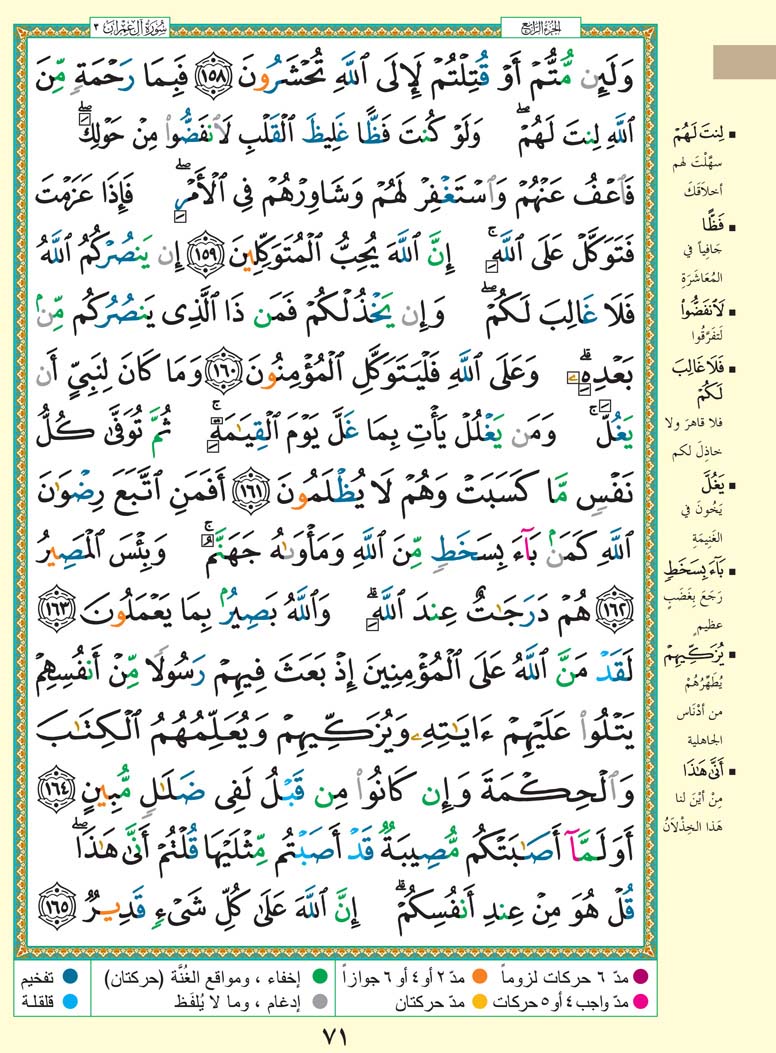 سُورَةُ آلِ عِمْرَانَ ٣
الجُزْءُ الرَّابِعُ
وَلَئِن مُّتُّمْ أَوْ قُتِلْتُمْ لَإِلَى ٱللَّهِ تُحْشَرُونَ ١٥٨ فَبِمَا رَحْمَةٍ مِّنَ
ٱللَّهِ لِنتَ لَهُمْ ۖ وَلَوْ كُنتَ فَظًّا غَلِيظَ ٱلْقَلْبِ لَٱنفَضُّوا۟ مِنْ حَوْلِكَ ۖ
فَٱعْفُ عَنْهُمْ وَٱسْتَغْفِرْ لَهُمْ وَشَاوِرْهُمْ فِى ٱلْأَمْرِ ۖ فَإِذَا عَزَمْتَ
فَتَوَكَّلْ عَلَى ٱللَّهِ ۚ إِنَّ ٱللَّهَ يُحِبُّ ٱلْمُتَوَكِّلِينَ ١٥٩ إِن يَنصُرْكُمُ ٱللَّهُ
فَلَا غَالِبَ لَكُمْ ۖ وَإِن يَخْذُلْكُمْ فَمَن ذَا ٱلَّذِى يَنصُرُكُم مِّنۢ
بَعْدِهِۦ ۗ وَعَلَى ٱللَّهِ فَلْيَتَوَكَّلِ ٱلْمُؤْمِنُونَ ١٦٠ وَمَا كَانَ لِنَبِىٍّ أَن
يَغُلَّ ۚ وَمَن يَغْلُلْ يَأْتِ بِمَا غَلَّ يَوْمَ ٱلْقِيَٰمَةِ ۚ ثُمَّ تُوَفَّىٰ كُلُّ
نَفْسٍ مَّا كَسَبَتْ وَهُمْ لَا يُظْلَمُونَ ١٦١ أَفَمَنِ ٱتَّبَعَ رِضْوَٰنَ
ٱللَّهِ كَمَنۢ بَآءَ بِسَخَطٍ مِّنَ ٱللَّهِ وَمَأْوَىٰهُ جَهَنَّمُ ۚ وَبِئْسَ ٱلْمَصِيرُ
١٦٢ هُمْ دَرَجَٰتٌ عِندَ ٱللَّهِ ۗ وَٱللَّهُ بَصِيرٌۢ بِمَا يَعْمَلُونَ ١٦٣
لَقَدْ مَنَّ ٱللَّهُ عَلَى ٱلْمُؤْمِنِينَ إِذْ بَعَثَ فِيهِمْ رَسُولًا مِّنْ أَنفُسِهِمْ
يَتْلُوا۟ عَلَيْهِمْ ءَايَٰتِهِۦ وَيُزَكِّيهِمْ وَيُعَلِّمُهُمُ ٱلْكِتَٰبَ
وَٱلْحِكْمَةَ وَإِن كَانُوا۟ مِن قَبْلُ لَفِى ضَلَٰلٍ مُّبِينٍ ١٦٤
أَوَلَمَّآ أَصَٰبَتْكُم مُّصِيبَةٌ قَدْ أَصَبْتُم مِّثْلَيْهَا قُلْتُمْ أَنَّىٰ هَٰذَا ۖ
قُلْ هُوَ مِنْ عِندِ أَنفُسِكُمْ ۗ إِنَّ ٱللَّهَ عَلَىٰ كُلِّ شَىْءٍ قَدِيرٌ ١٦٥
▪ لِنتَ لَهُمْ
سهَّلْتَ لهم
أخلاقَكَ
▪ فَظًّا
جَافِياً في
المُعَاشَرَةِ
▪ لَٱنفَضُّوا۟
لَتَفَرَّقُوا
▪ فَلَا غَالِبَ
لَكُمْ
فلا قاهرَ ولا
خاذِلَ لكم
▪ يَغُلَّ
يَخُونَ في
الغَنِيمَةِ
▪ بَآءَ بِسَخَطٍ
رَجَعَ بِغَضَبٍ
عظيم
▪ يُزَكِّيهِمْ
يُطَهِّرُهُمْ
من أدْنَاس
الجاهلية
▪ أَنَّىٰ هَٰذَا
مِنْ أيْنَ لنا
هَذا الخِذْلَانُ
مدّ ٦ حركات لزوماً
مدّ ٢ أو ٤ أو ٦ جوازاً
إخفاء ، ومواقع الغُنَّة (حركتان)
تفخيم
مدّ واجب ٤ أو ٥ حركات
مدّ حركتان
إدغام ، وما لا يُلفَظ
قلقلة
٧١